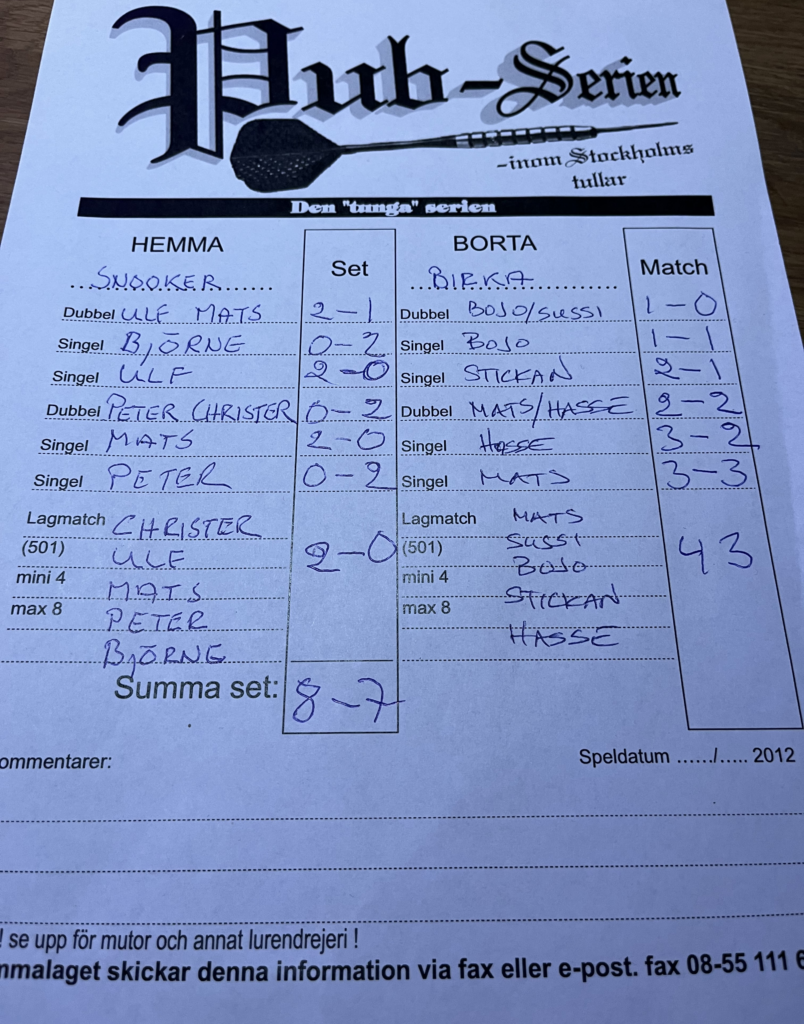 Pub-Serien
-inom Stockholms
tullar
Den "tunga" serien
HEMMA Set BORTA Match
SNOOKER BIRKA
Dubbel ULF MATS 2-1 Dubbel BOJO/SUSSI 1-0
Singel BJÖRNE 0-2 Singel BOJO 1-1
Singel ULF 2-0 Singel STICKAN 2-1
Dubbel PETER CHRISTER 0-2 Dubbel MATS/HASSE 2-2
Singel MATS 2-0 Singel HASSE 3-2
Singel PETER 0-2 Singel MATS 3-3
Lagmatch CHRISTER Lagmatch MATS
(501) ULF 2-0 (501) SUSSI 4 3
mini 4 MATS mini 4 BOJO
max 8 PETER max 8 STICKAN
BJÖRNE HASSE
Summa set: 8-7
ommentarer: Speldatum ....../..... 2012
! se upp för mutor och annat lurendrejeri !
mmalaget skickar denna information via fax eller e-post. fax 08-55 111 6